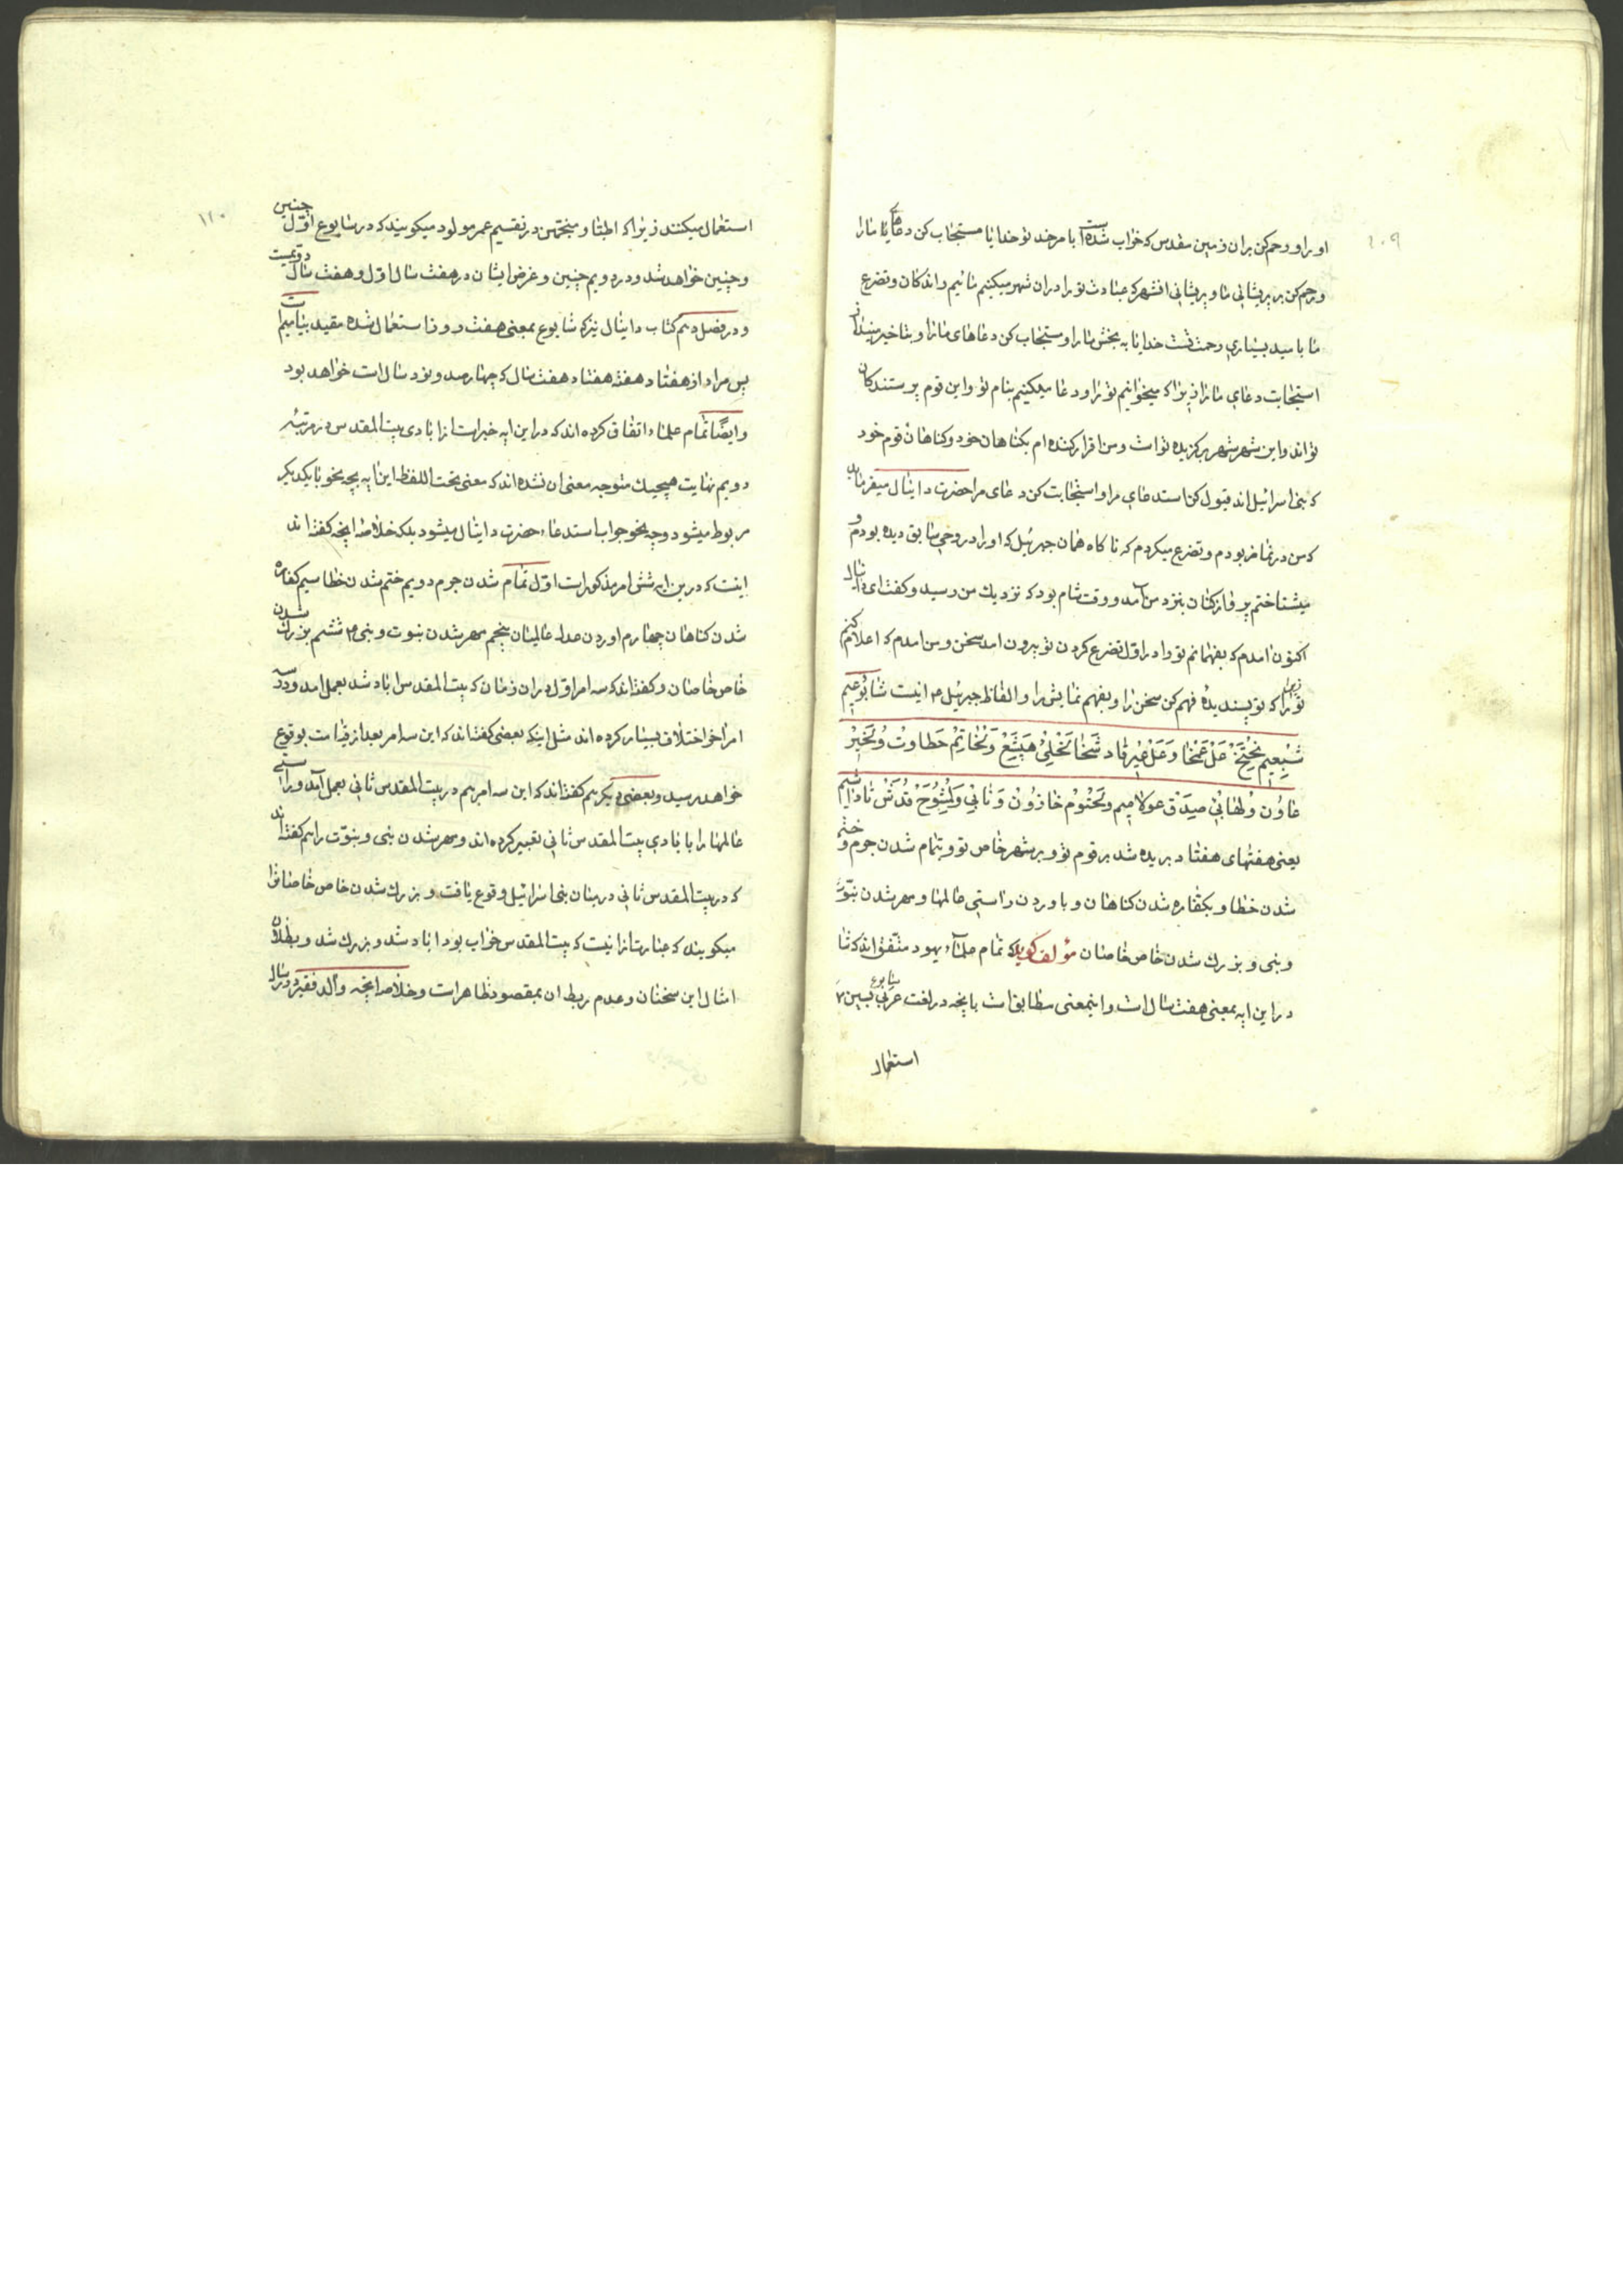 ۱۰۹
او را و رحم کن بران زمین مقدس که خراب شده است با مر خدا تو خدایا مستجاب کن دعای ما را
و رحم کن بر پریشانی ما و پریشانی انشهر که عبادت تو را دران شهر میکنیم مائیم واندکان و تضرع
ما بامید بسیاری رحمت تست خدایا به بخش ما را و مستجاب کن دعاهای ما را و بتاخیر مینداز
استجابت دعای ما را زیرا که میخوانیم تو را و دعا میکنیم بنام تو و این قوم پرستندکان
تو اند و این شهر شهر برکزیده تو است و من اقرار کننده ام بکناهان خود و کناهان قوم خود
که بنی اسرائیل اند قبول کن استدعای مرا و استجابت کن دعای مرا حضرت دانیال میفرماید
که من در نماز بودم و تضرع میکردم که ناکاه همان جبرئیل که او را در وحی سابق دیده بودم و
میشناختم پرواز کنان بنزد من آمد و وقت شام بود که نزدیك من رسید و کفت ای دانیال
اکنون امدم که بفهمانم تو را در اول تضرع کردن تو بیرون امد سخن و من امدم که اعلام کنم
تو را زیرا که تو پسندیدهٔ فهم کن سخن را و بفهم نمایش را و الفاظ جبرئیل ۴ اینست شابُوعیم
شِبْعِیم نِحْتَخْ عَلْ عَمْخا وَعَلْ عِیْر قادشَخا لَخَلِیْ هَپِشَعْ وَلْخاتِمْ حَطاوتْ وُلْخَپِرْ
عاوُن وُلْهابِیْ صِیدَقْ عولامیم وَلَحْتومْ خازُونْ وَنابِیْ وَلِمْشُوَحْ قُدَشْ قاداشیم
یعنی هفتهای هفتاد بریده شد بر قوم تو و بر شهر خاص تو و بتمام شدن جرم و ختم
شدن خطا و بکفاره شدن کناهان و باوردن راستی عالمها و مهر شدن نبوّت
و نبی و بزرك شدن خاص خاصان مؤلف کوید که تمام علمآء یهود متفق اند که شابوع
در این ایه بمعنی هفت سال است و اینمعنی مطابق است بانچه در لغت عربی
استعمال
۱۱۰
استعمال میکنند زیرا که اطبّا و منجّمین در تقسیم عمر مولود میکویند که در سابوع اوّل چنین
و چنین خواهد شد و در دویم چنین و غرض ایشان در هفت سال اول و هفت سال دویمست
و در فصل دهم کتاب دانیال نیز که شابوع بمعنی هفت روز استعمال شده مقید بیامیم است
پس مراد از هفتاد هفته هفتاد هفت سال که چهارصد و نود سال است خواهد بود
و ایضًا تمام علماء اتفاق کرده اند که در این ایه خبر است از ابادی بیت المقدس در مرتبهٔ
دویم نهایت هیچیك متوجه معنی ان نشده اند که معنی تحت اللفظ این ایه بچه نحو با یکدیکر
مربوط میشود و چه نحو جواب استدعاء حضرت دانیال میشود بلکه خلاصه انچه کفته اند
اینست که درین ایه شش امر مذکور است اوّل تمام شدن جرم دویم ختم شدن خطا سیم کفاره
شدن کناهان چهارم اوردن عدل عالمیان پنجم مهر شدن نبوت و نبی ۴ ششم بزرك شدن
خاص خاصان و کفته اند که سه امر اول دران زمان که بیت المقدس اباد شد بعمل امد و در سه
امر اخر اختلاف بسیار کرده اند مثل اینکه بعضی کفته اند که این سه امر بعد از قیامت بوقوع
خواهد رسید و بعضی دیکر هم کفته اند که این سه امر هم در بیت المقدس ثانی بعمل آمد و راستی
عالمها را بابادی بیت المقدس ثانی تعبیر کرده اند و مهر شدن نبی و نبوّت را هم کفته اند
که در بیت المقدس ثانی در میان بنی اسرائیل وقوع یافت و بزرك شدن خاص خاصان را
میکویند که عبارت از انیست که بیت المقدس خراب بود اباد شد و بزرك شد و بطلان
امثال این سخنان و عدم ربط ان بمقصود ظاهر است و خلاصه انچه والد فقیر در